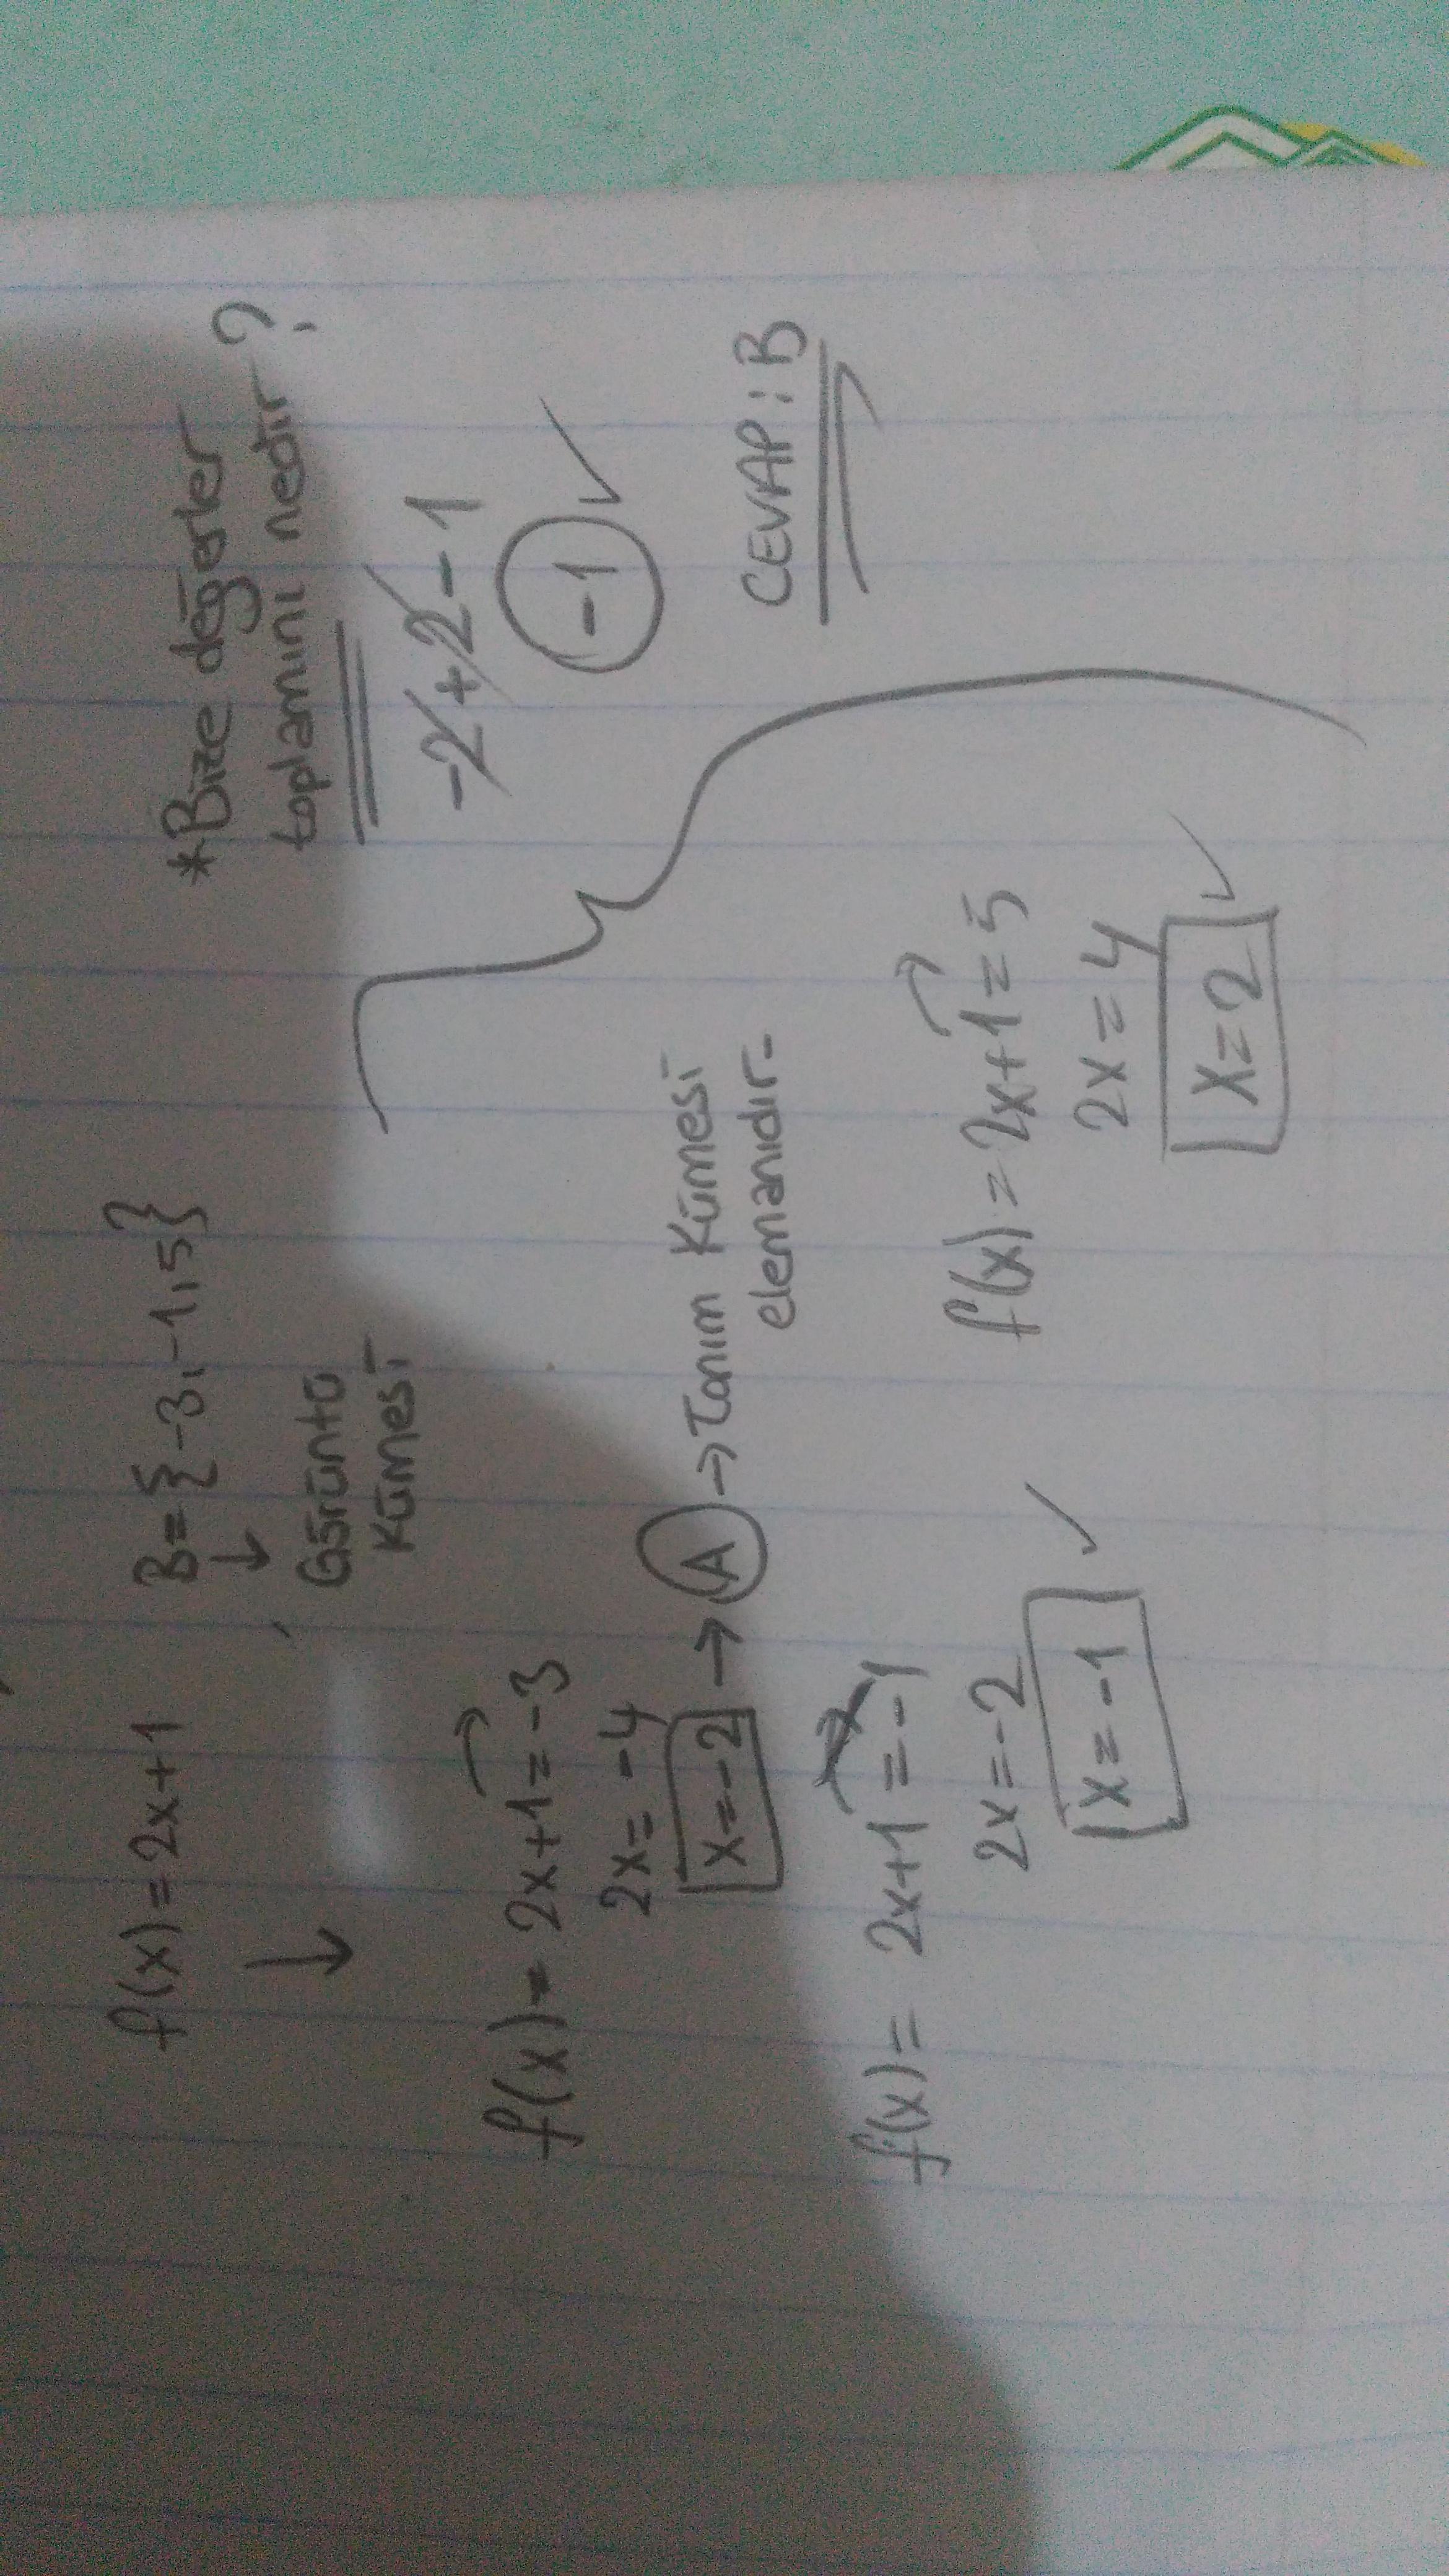 f(x) = 2x+1 B = {-3, -1, 5}
↓ ↓
Görüntü
Kümesi
f(x) = 2x+1 = -3
2x = -4
x = -2 → A → Tanım Kümesi
elemanıdır.
f(x) = 2x+1 = -1
2x = -2
x = -1 ✓
f(x) = 2x+1 = 5
2x = 4
x = 2 ✓
*Bize değerler
toplamını nedir?
-2+2-1
-1 ✓
CEVAP: B